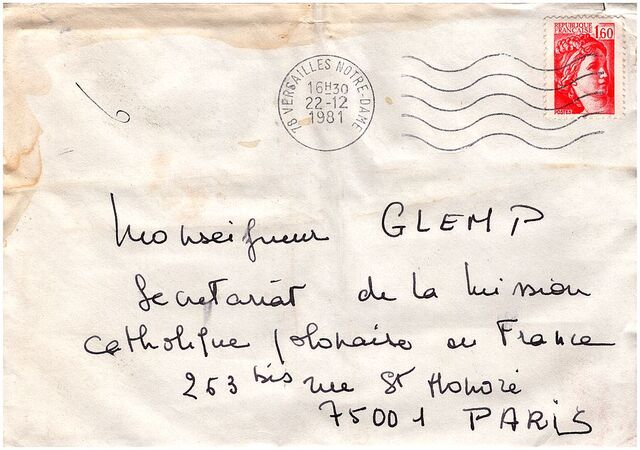 REPUBLIQUE
FRANÇAISE
1,60
POSTES
78 VERSAILLES NOTRE-DAME
16H30
22-12
1981
6
Monseigneur GLEMP
Secretariat de la Mission
Catholique polonaise en France
263 bis rue St Honoré
75001 PARIS